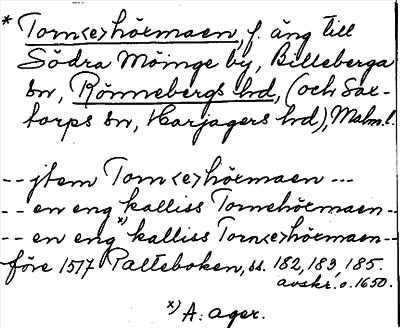 * Torn<e>hörmaen, f. äng till
Södra Möinge by, Billeberga
sn, Rönnebergs hd, (och Sax-
torps sn, Harjagers hd), Malm.l.
-- jtem Torn<e>hörmaen ---
-- en eng kalliss Tornehörmaen --
-- en eng x) kalliss Torn<e>hörmaen --
före 1517 Palteboken, ss. 182, 183, 185.
avskr. o. 1650.
x) A: ager.